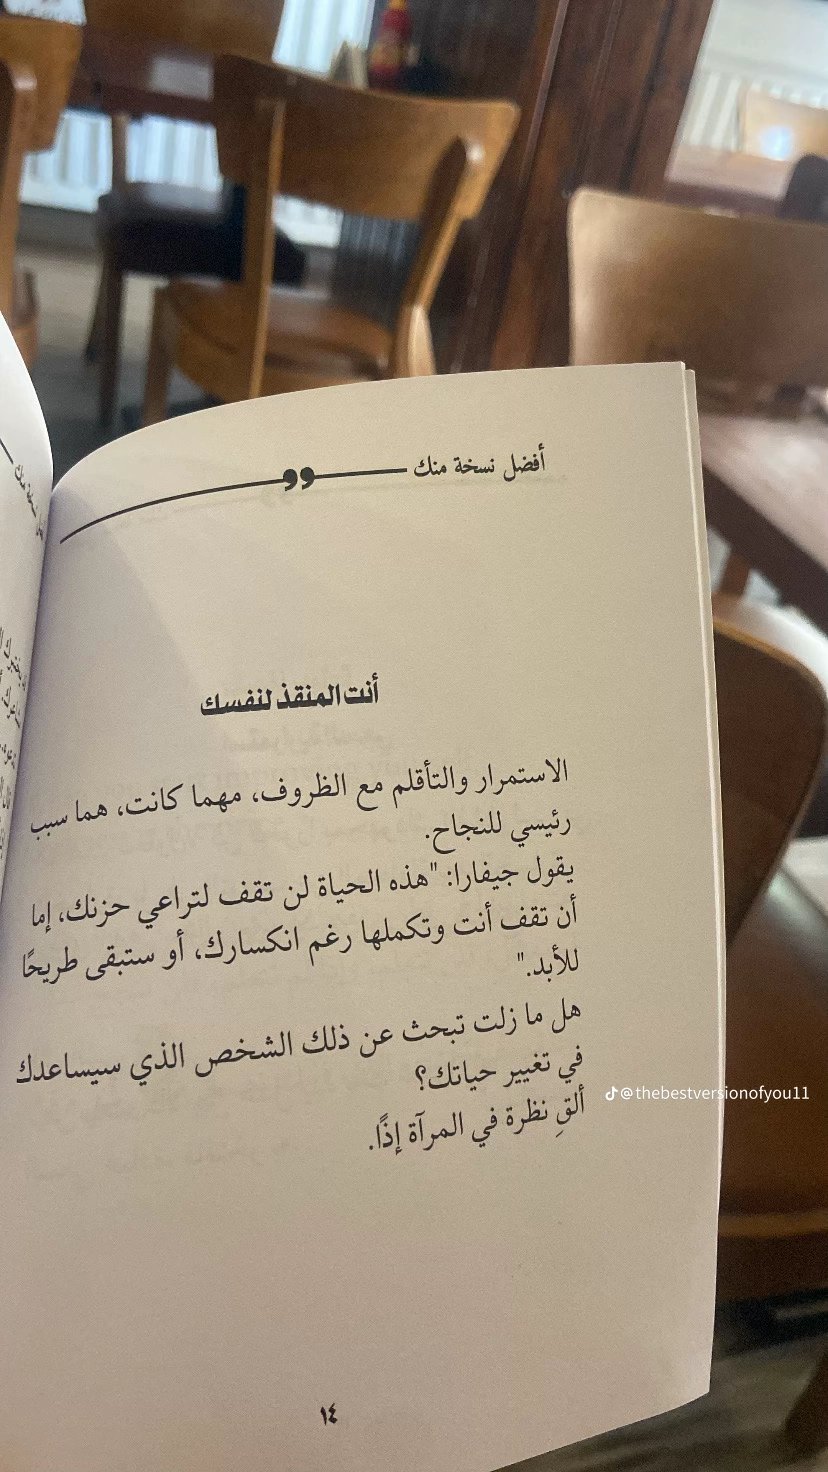 أفضل نسخة منك
أنت المنقذ لنفسك
الاستمرار والتأقلم مع الظروف، مهما كانت، هما سبب
رئيسي للنجاح.
يقول جيفارا: "هذه الحياة لن تقف لتراعي حزنك، إما
أن تقف أنت وتكملها رغم انكسارك، أو ستبقى طريحًا
للأبد."
هل ما زلت تبحث عن ذلك الشخص الذي سيساعدك
في تغيير حياتك؟
ألقِ نظرة في المرآة إذًا.
@thebestversionofyou11
١٤